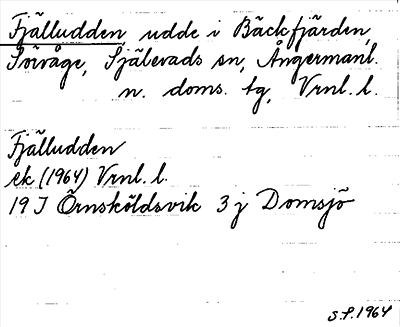 Fjälludden, udde i Bäckfjärden,
Sörvåge, Själevads sn, Ångermanl.
n. doms. tg, Vrnl. l.
Fjälludden
ek (1964) Vrnl. l.
19 J Örnsköldsvik 3 j Domsjö
S.F. 1964